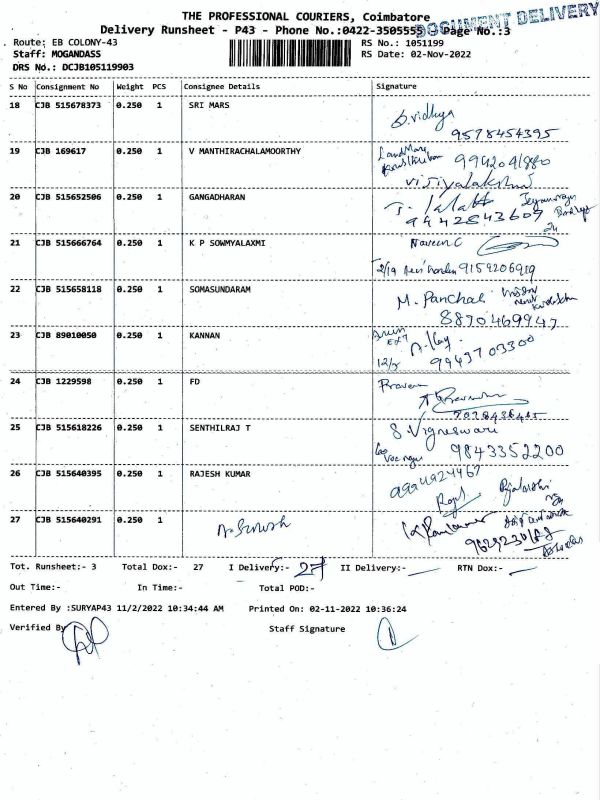 THE PROFESSIONAL COURIERS, Coimbatore
DOCUMENT DELIVERY
Delivery Runsheet - P43 - Phone No.:0422-3505555 Page No.:3
Route: EB COLONY-43 RS No.: 1051199
Staff: MOGANDASS RS Date: 02-Nov-2022
DRS No.: DCJB105119903
S No Consignment No Weight PCS Consignee Details Signature
18 CJB 515678373 0.250 1 SRI MARS
9578454395
19 CJB 169617 0.250 1 V MANTHIRACHALAMOORTHY
9942041880
20 CJB 515652506 0.250 1 GANGADHARAN
9442843609
21 CJB 515666764 0.250 1 K P SOWMYALAXMI Naveen C
9159206919
22 CJB 515658118 0.250 1 SOMASUNDARAM
M. Panchal
8870469947
23 CJB 89010050 0.250 1 KANNAN
9943703300
24 CJB 1229598 0.250 1 FD Praveen
25 CJB 515618226 0.250 1 SENTHILRAJ T S. Vigneswari
9843352200
26 CJB 515640395 0.250 1 RAJESH KUMAR
27 CJB 515640291 0.250 1
Tot. Runsheet:- 3 Total Dox:- 27 I Delivery:- 27 II Delivery:- RTN Dox:-
Out Time:- In Time:- Total POD:-
Entered By :SURYAP43 11/2/2022 10:34:44 AM Printed On: 02-11-2022 10:36:24
Verified By Staff Signature